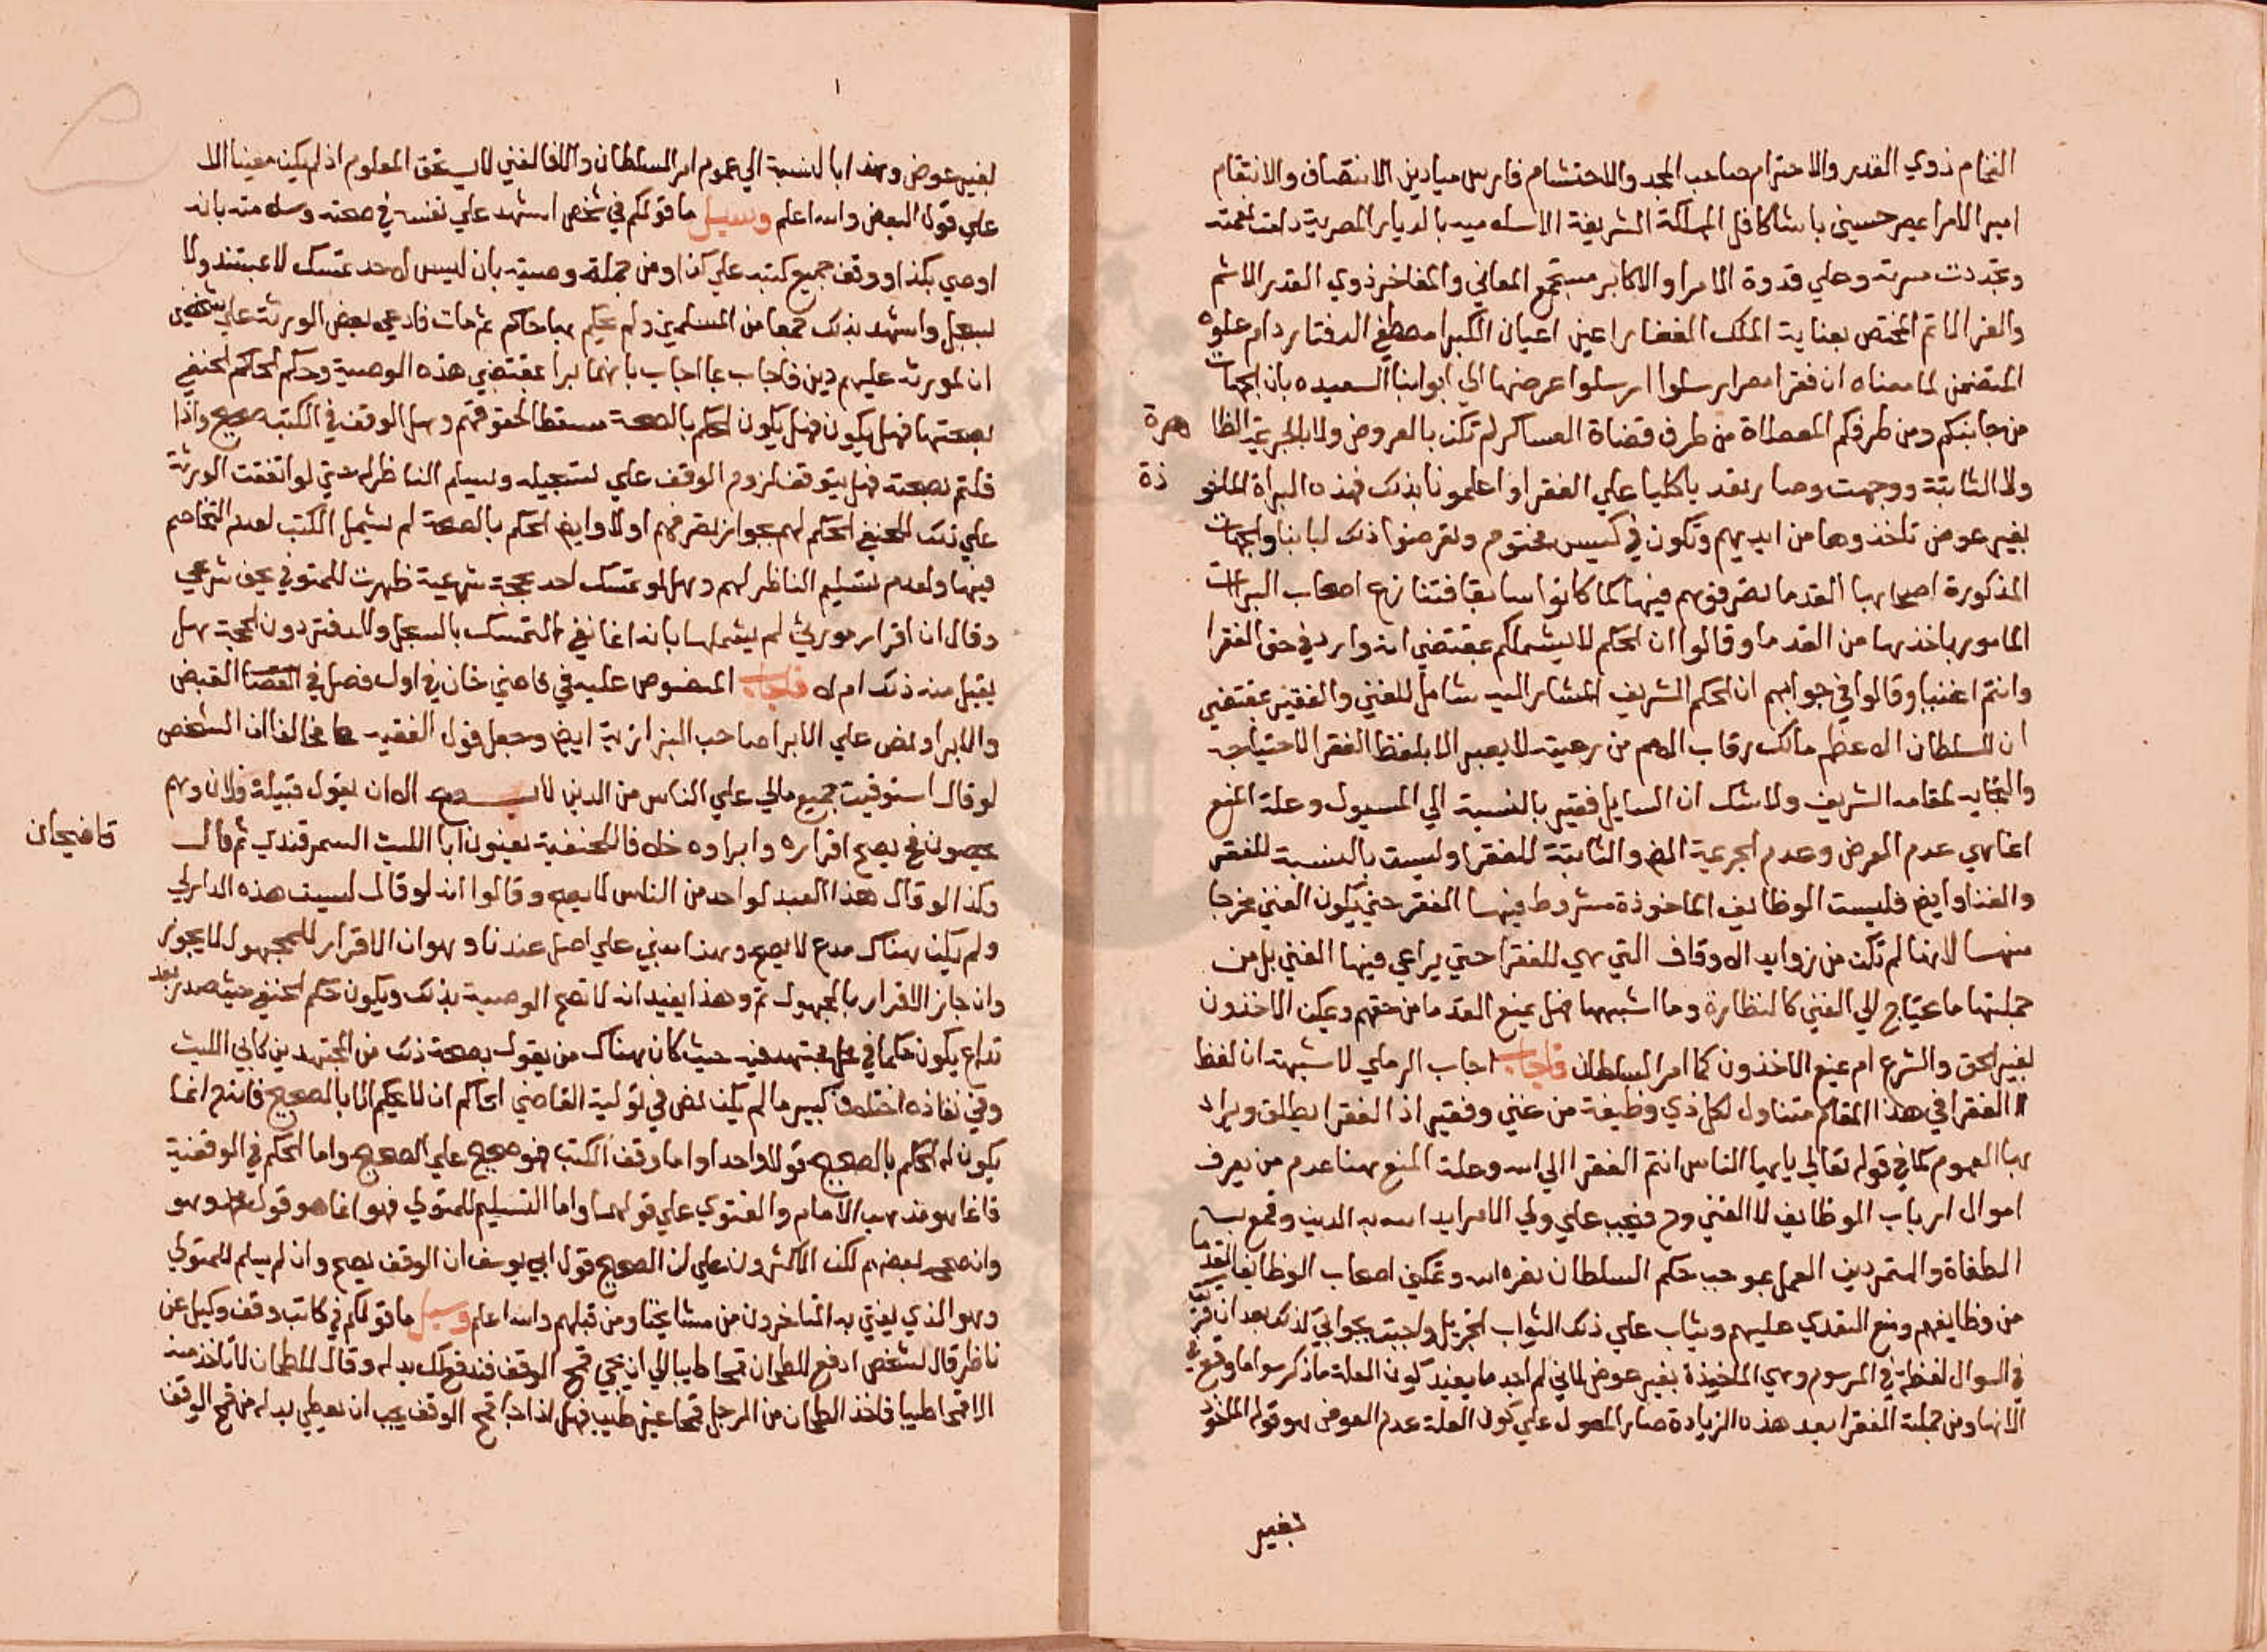 الفخام ذوي القدر والاحترام صاحب المجد والاحتشام فارس ميادين الانتصاف والانتقام
امير الامرا عيصر حسين باشا كافل المملكة الشريفة الاسلاميه بالديار المصرية دامت نعمته
وتجددت مسرته وعلي قدوة الامرا والاكابر مستجمع المعاني والمفاخر ذوي القدر الاشم
والفخر الاتم المختص بعناية الملك الغفار اعين اعيان الكبرا مصطفي الدفتار دام علوه
المتضمن لما معناه ان فقرا مصر ارسلوا ارسلوا عرضها الي ابوابنا السعيده بان الجهات
من جانبكم ومن طرفكم المعطاة من طرف قضاة العساكر لم تكن بالعروض ولا بالجرعية الظاهرة
ولا الثابتة ووجهت وصار تعديا كليا علي الفقرا واعلمونا بذلك فهذه البراة الماخوذة
بغير عوض تاخذوها من ايديهم وتكون في كيس مختوم وتعرضوا ذلك لبابنا والجهات
المذكورة اصحابها القدما تصرفوهم فيها كما كانوا سابقا فتنازع اصحاب البراات
المامور باخذها من القدما وقالوا ان الحكم لا يشملكم بمقتضي انه وارد في حق الفقرا
وانتم اغنيا وقالوا في جوابهم ان الحكم الشريف المشار اليه شامل للغني والفقير بمقتضي
ان السلطان الاعظم مالك رقاب الامم من رعيته لا يعبر الا بلفظ الفقر الاحتياجه
والتجايه لمقامه الشريف ولا شك ان السايل فقير بالنسبة الي المسيول وعلة المنع
انما هي عدم العرض وعدم الجرعية الخ والثابتة للفقرا وليست بالنسبة للفقر
والغنا وايض فليست الوظايف الماخوذة مشروط فيها الفقر حتي يكون الغني مخرجا
منها لانها لم تكن من زوايد الاوقاف التي هي للفقرا حتي يراعي فيها الغني بل من
جملتها ما يحتاج الي الغني كالنظارة وما اشبهها فهل يمنع القدما من حقهم ويمكن الاخذون
بغير الحق والشرع ام يمنع الاخذون كما امر السلطان فاجاب اجاب الرملي لا شبهة ان لفظ
الفقرا في هذا المقام متناول لكل ذي وظيفة من غني وفقير اذ الفقرا يطلق ويراد
بها العموم كما في قوله تعالي يا يها الناس انتم الفقرا الي الله وعلة المنع هنا عدم من يعرف
اموال ارباب الوظايف لا الغني وح فيجب علي ولي الامر ايد الله به الدين وقمع به
الطغاة والمتمردين العمل بموجب حكم السلطان نصره الله وتمكين اصحاب الوظايف القدما
من وظايفهم ومنع التعدي عليهم ويثاب علي ذلك الثواب الجزيل واجبت بجوابي لذلك بعد ان
في السوال لفظة في المرسوم وهي الماخوذة بغير عوض لاني لم اجد ما يفيد كون العلة ما ذكر سوا ما وقع في
الانها ومن جملة الفقرا بعد هذه الزيادة صار المعول علي كون العلة عدم العوض لهو قوله الماخوذ
بغير
بغير عوض وهذا بالنسبة الي عموم امر السلطان والا فالغني لا يستحق المعلوم اذ لم يكن معينا الا
علي قول البعض والله اعلم وسيل ما قولكم في شخص اشهد علي نفسه في صحته وسلامته بانه
اوصي بكذا ووقف جميع كتبه علي كذا ومن جملة وصيته بان ليس لاحد تمسك لا بمستند ولا
بسجل واشهد بذلك جمعا من المسلمين ولم يحكم بها حاكم ثم مات فادعي بعض الورثة علي شخصين
ان لمورثه عليهم دين فاجاب بما اجاب بانهما برا بمقتضي هذه الوصية وحكم الحاكم الحنفي
بصحتها فهل يكون فهل يكون الحكم بالصحة مسقطا لحقوقهم وهل الوقف في الكتبه صحيح واذا
قلتم بصحته فهل يتوقف لزوم الوقف علي تسجيله وتسليم الناظر له حتي لو اتفقت الورثة
علي ذلك للحنفي الحكم لهم بجواز تصرفهم اولا وايض الحكم بالصحة لم يشمل الكتب لعدم التخاصم
فيها ولعدم تسليم الناظر لهم وهل لو تمسك احد بحجة شرعية ظهرت للمتوفي بحق شرعي
وقال ان اقرار مورثي لم يشملها بانه انما نفي التمسك بالسجل والدفتر دون الحجة هل
يقبل منه ذلك ام لا فاجاب المنصوص عليه في قاضي خان في اول فصل في القبض
والابرا ونص علي الابرا صاحب البزازية ايض وجعل قول الفقيه مخالفا ان الشخص
لو قال استوفيت جميع مالي علي الناس من الدين لا يصح الا ان يقول قبيلة فلان وهم
يحصون فح يصح اقراره وابراوه خلافا للحنفية يعنون ابا الليث السمرقندي ثم قال
قاضيخان
وكذا لو قال هذا العبد لواحد من الناس لا يصح وقالوا انه لو قال ليست هذه الدار لي
ولم يكن هناك مدع لا يصح وهذا مبني علي اصل عندنا وهو ان الاقرار للمجهول لا يجوز
وان جاز الاقرار بالمجهول ثم وهذا يفيد انه لا تصح الوصية بذلك ويكون حكم الحنفي حيث صدر بعد
تداع يكون حكما في محل مجتهد فيه حيث كان هناك من يقول بصحة ذلك من المجتهدين كابي الليث
وفي نفاذه اختلاف كبير ما لم يكن نص في تولية القاضي الحاكم ان لا يحكم الا بالصحيح فانه ح انما
يكون له الحكم بالصحيح قولا واحدا واما وقف الكتب فهو صحيح علي الصحيح واما الحكم في الوقفية
فانما هو مذهب الامام والفتوي علي قولهما واما التسليم للمتولي فهو انما هو قول محمد وهو
وان صححه بعضهم لكن الاكثرون علي ان الصحيح قول ابي يوسف ان الوقف يصح وان لم يسلم للمتولي
وهو الذي يفتي به المتاخرون من مشايخنا ومن قبلهم والله اعلم وسيل ما قولكم في كاتب وقف وكيل عن
ناظر قال لشخص ادفع للطحان قمحا طيبا الي ان يجي قمح الوقف فندفع لك بدله وقال للطحان لا تاخذ منه
الا قمحا طيبا فاخذ الطحان من الرجل قمحا غير طيب فهل اذا جا قمح الوقف يجب ان يعطي بدله من قمح الوقف